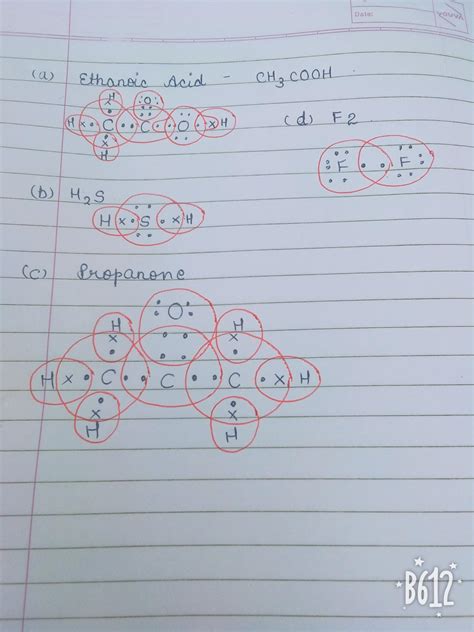 Date:
YOUVA
(a) Ethanoic Acid - CH3COOH
H
O
H C C O H
H
(d) F2
F F
(b) H2S
H S H
(c) Propanone
O
H H
H C C C H
H H
B612